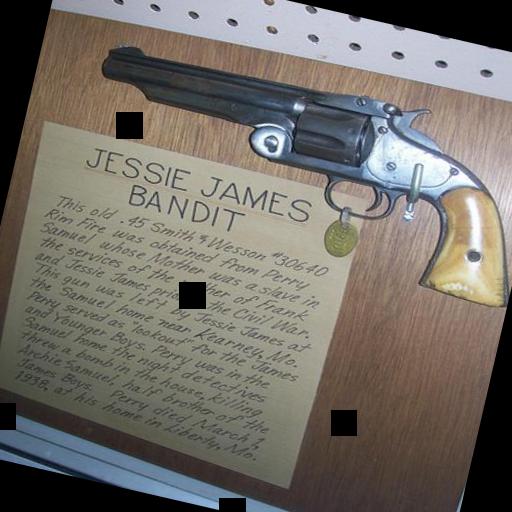 JESSIE JAMES
BANDIT
This old .45 Smith & Wesson #30640
Rim Fire was obtained from Perry
Samuel whose Mother was a slave in
the services of the of Frank
and Jessie James the Civil War.
This gun was left by Jessie James at
the Samuel home near Kearney, Mo.
Perry served as "lookout" for the James
and Younger Boys. Perry was in the
Samuel home the night detectives
threw a bomb in the house, killing
Archie Samuel, half brother of the
James Boys. Perry died, March 1,
1938, at his home in Liberty, Mo.